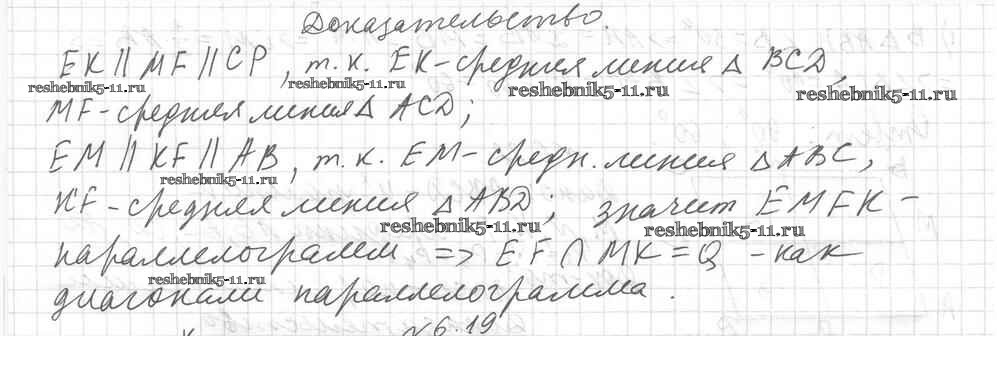 Доказательство.
EK || MF || CP, т.к. EK-средняя линия △ BCD,
reshebnik5-11.ru reshebnik5-11.ru reshebnik5-11.ru reshebnik5-11.ru
MF-средняя линия △ ACD;
EM || KF || AB, т.к. EM-средн. линия △ABC,
reshebnik5-11.ru
KF-средняя линия △ABD; значит EMFK -
reshebnik5-11.ru reshebnik5-11.ru
параллелограмм => EF ∩ MK = Q - как
reshebnik5-11.ru
диагонали параллелограмма.
№6.19